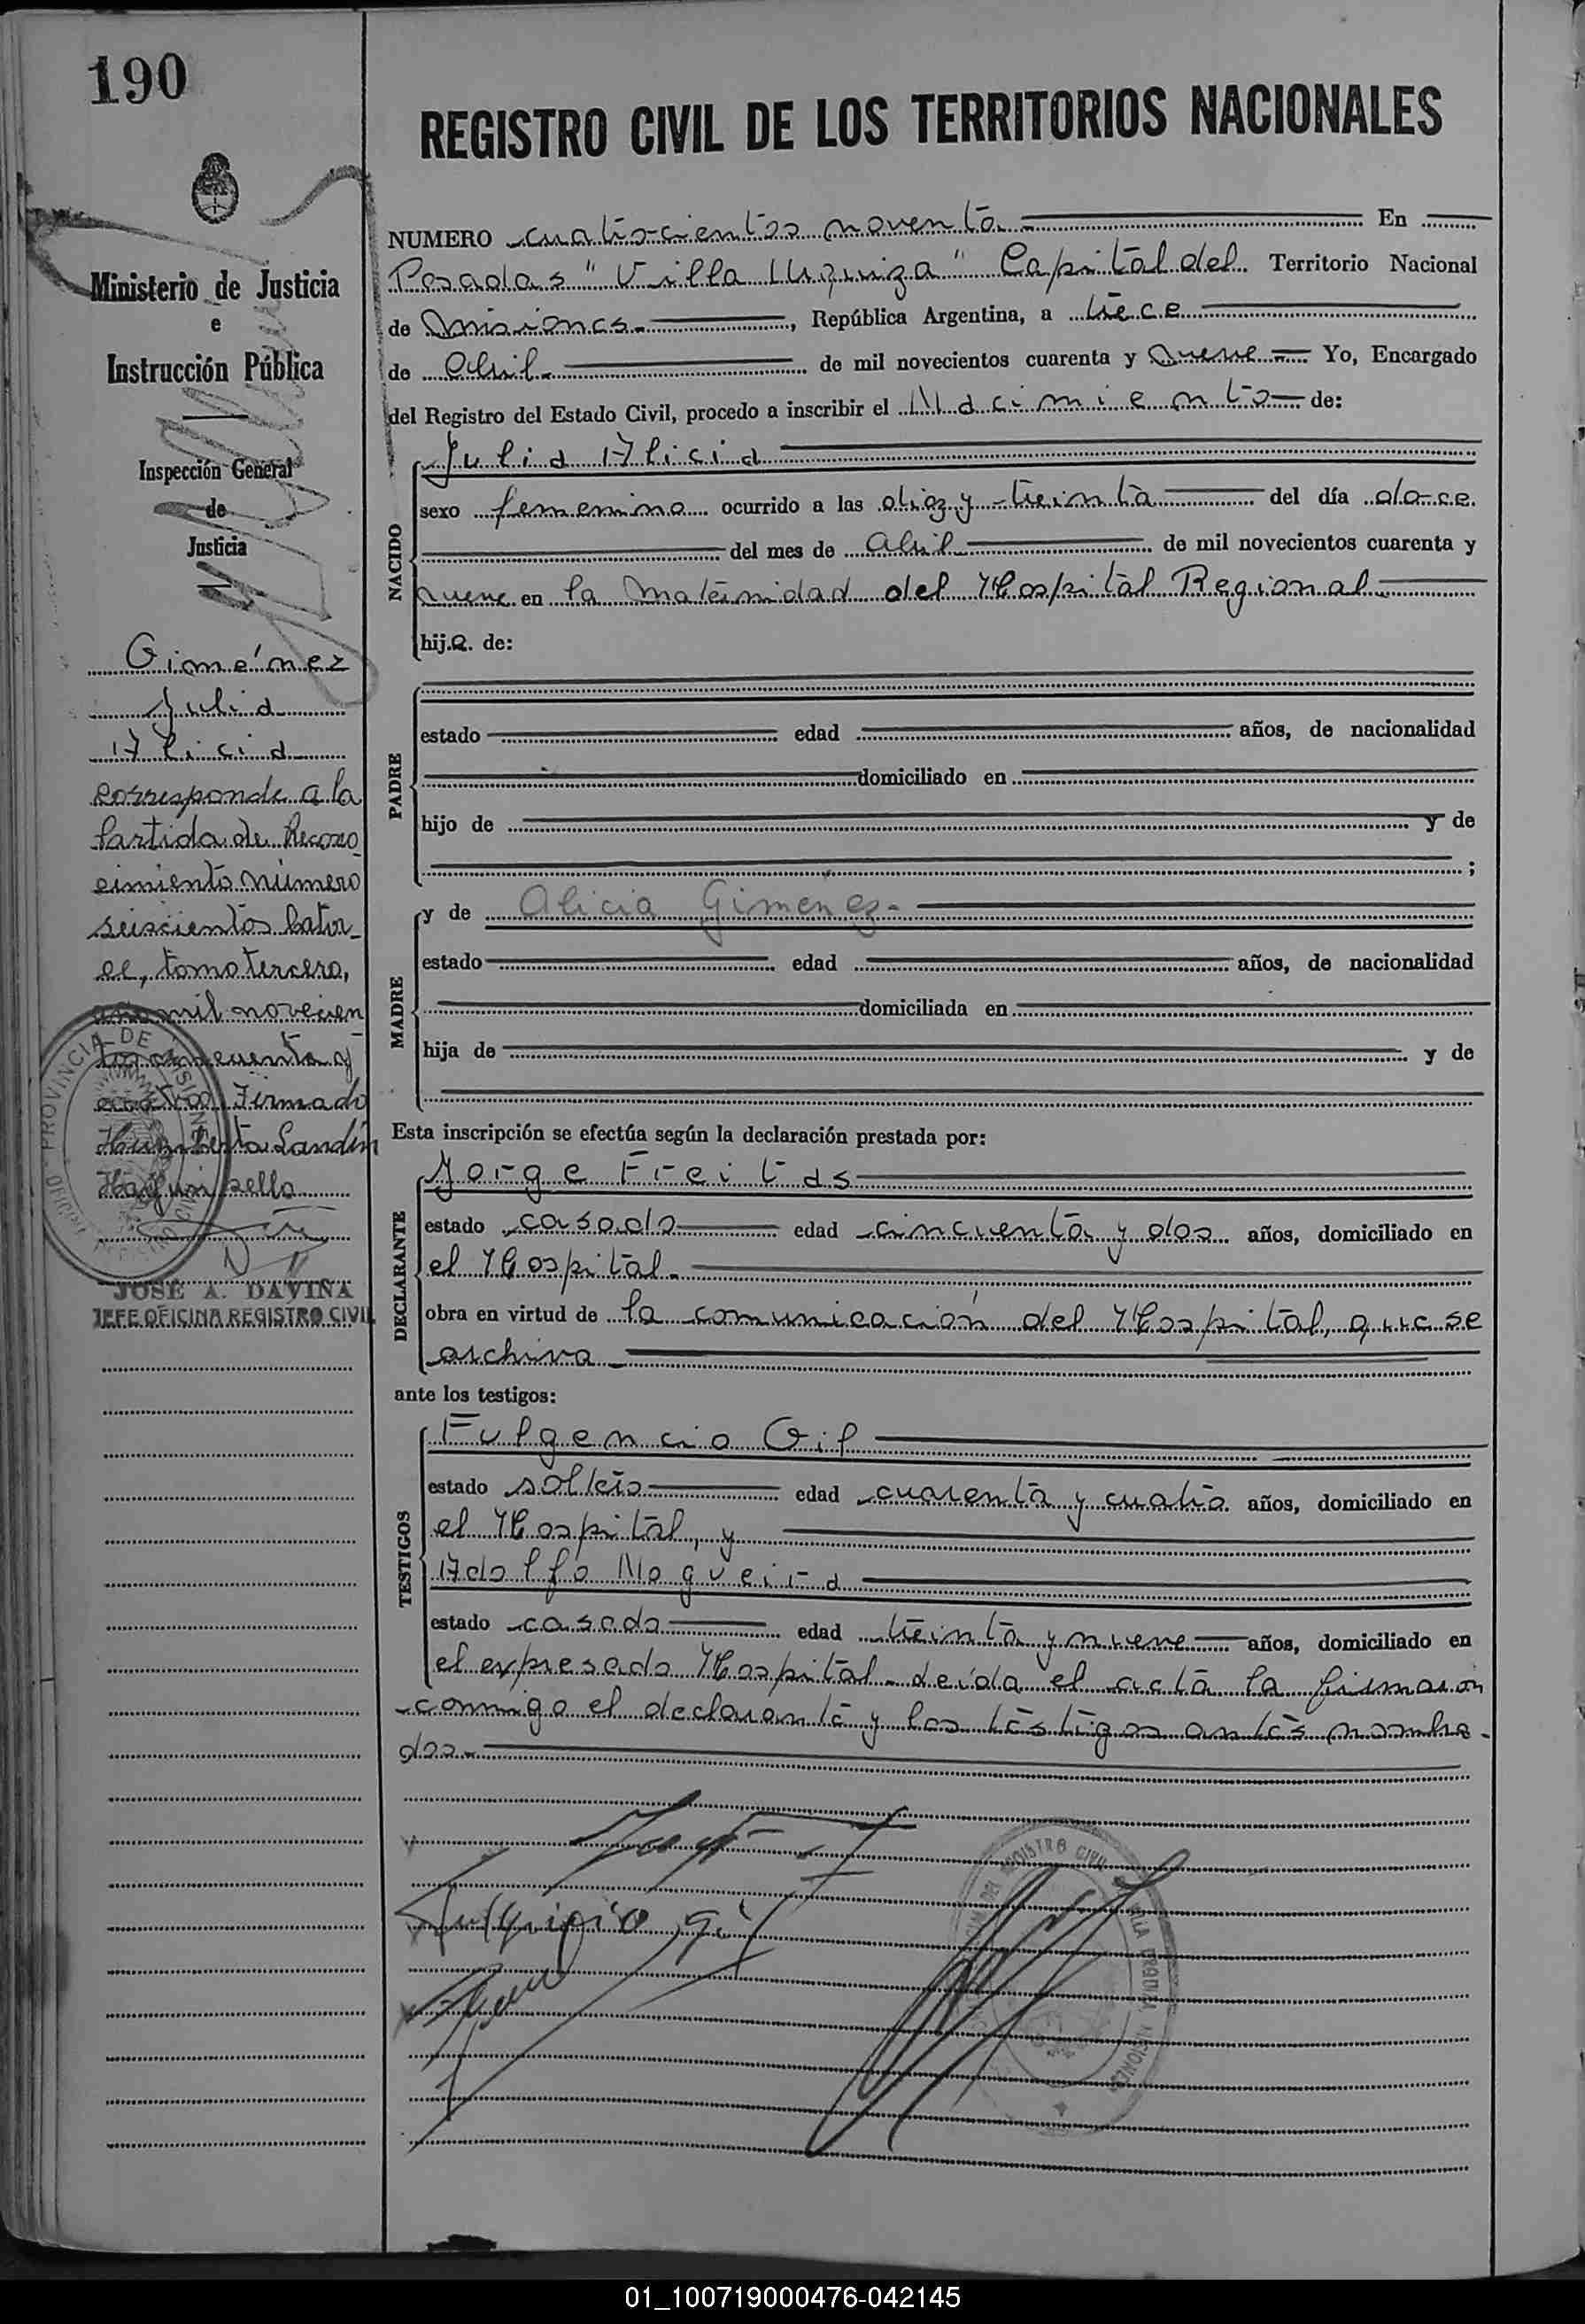 190
REGISTRO CIVIL DE LOS TERRITORIOS NACIONALES
Ministerio de Justicia
e
Instrucción Pública
Inspección General
de
Justicia
Giménez
Julia
Alicia
corresponde a la
Partida de Recono
cimiento número
seiscientos cator_
ce, tomo tercero,
año mil novecien
tos cincuenta y
cuatro Firmado
Humberto Landin
Hay un sello
PROVINCIA DE MISIONES
JOSÉ A. DAVIÑA
JEFE OFICINA REGISTRO CIVIL
NUMERO cuatrocientos noventa En
Posadas "Villa Urquiza" Capital del Territorio Nacional
de Misiones.-, República Argentina, a trece
de Abril.- de mil novecientos cuarenta y nueve.- Yo, Encargado
del Registro del Estado Civil, procedo a inscribir el Nacimiento de:
NACIDO
Julia Alicia
sexo femenino ocurrido a las diez y treinta del día doce
del mes de Abril de mil novecientos cuarenta y
nueve en la Maternidad del Hospital Regional.
hija de:
PADRE
estado edad años, de nacionalidad
domiciliado en
hijo de y de
;
MADRE
y de Alicia Giménez.-
estado edad años, de nacionalidad
domiciliada en
hija de y de
Esta inscripción se efectúa según la declaración prestada por:
DECLARANTE
Jorge Freitas
estado casado edad cincuenta y dos años, domiciliado en
el Hospital.-
obra en virtud de la comunicación del Hospital, que se
archiva.-
ante los testigos:
TESTIGOS
Fulgencio Gil
estado soltero edad cuarenta y cuatro años, domiciliado en
el Hospital, y
Adolfo Nogueira
estado casado edad treinta y nueve años, domiciliado en
el expresado Hospital.- Leída el acta la firmaron
conmigo el declarante y los testigos antes nombra-
dos.-
REGISTRO CIVIL VILLA URQUIZA MISIONES
Fulgencio Gil
01_100719000476-042145